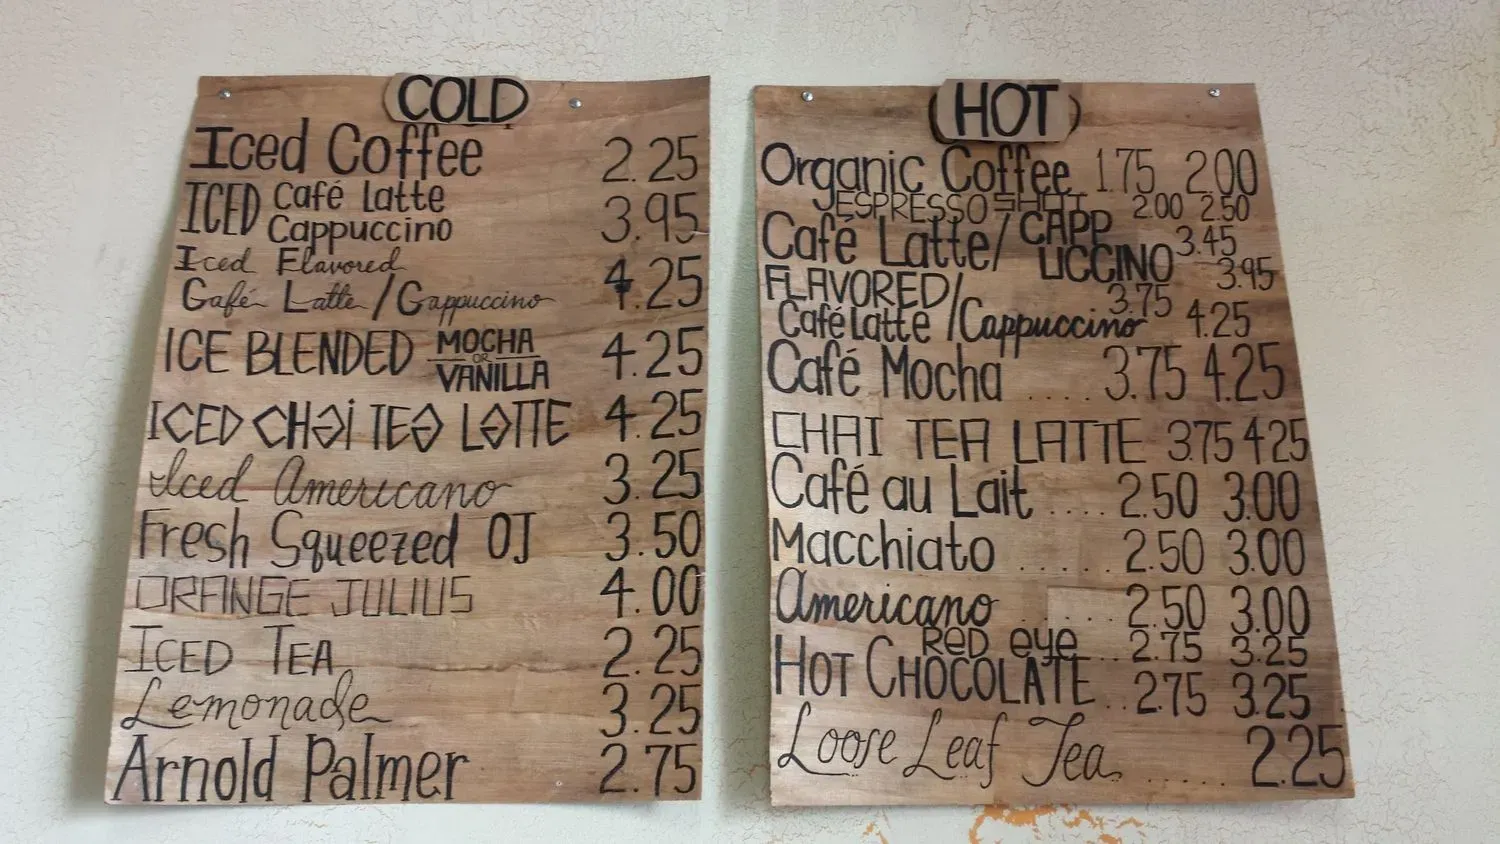 COLD
Iced Coffee 2.25
ICED Café Latte
Cappuccino 3.95
Iced Flavored
Café Latte / Cappuccino 4.25
ICE BLENDED MOCHA
OR
VANILLA 4.25
ICED CHAI TEA LATTE 4.25
Iced Americano 3.25
Fresh Squeezed OJ 3.50
ORANGE JULIUS 4.00
ICED TEA 2.25
Lemonade 3.25
Arnold Palmer 2.75
HOT
Organic Coffee 1.75 2.00
ESPRESSO SHOT 2.00 2.50
Café Latte/ CAPP
UCCINO 3.45 3.95
FLAVORED/ 3.75
Café Latte /Cappuccino 4.25
Café Mocha .... 3.75 4.25
CHAI TEA LATTE 3.75 4.25
Café au Lait .... 2.50 3.00
Macchiato ..... 2.50 3.00
Americano ..... 2.50 3.00
RED eye .. 2.75 3.25
HOT CHOCOLATE .. 2.75 3.25
Loose Leaf Tea ..... 2.25